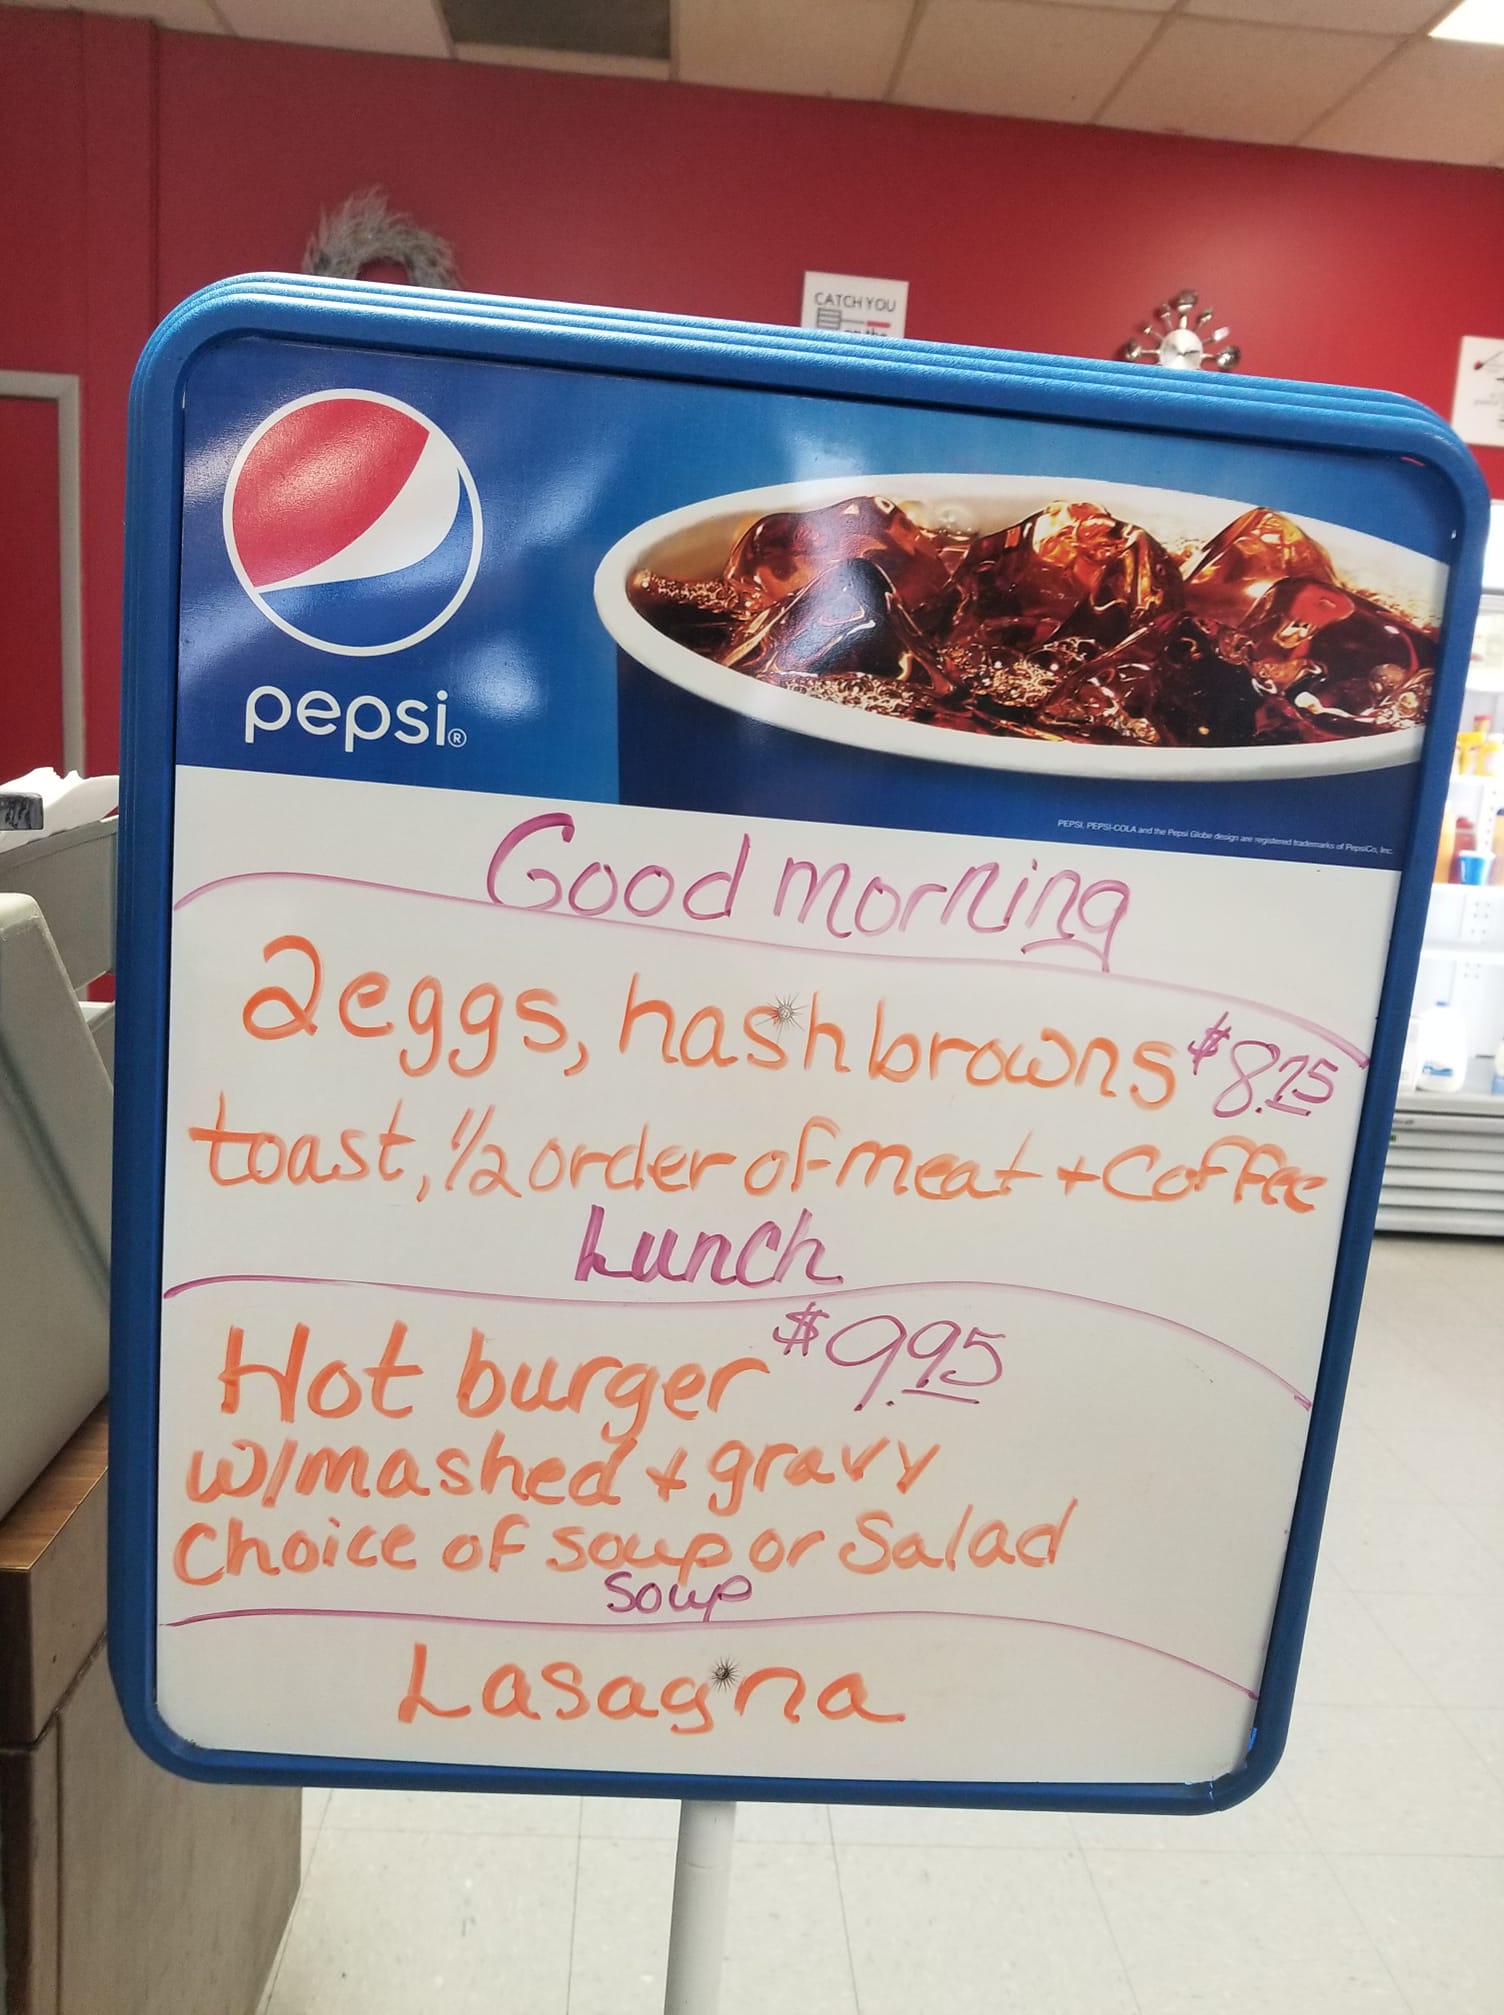 CATCH YOU
on the
pepsi®
PEPSI, PEPSI-COLA and the Pepsi Globe design are registered trademarks of PepsiCo, Inc.
Good morning
2 eggs, hashbrowns $8.75
toast, 1/2 order of meat + Coffee
Lunch
Hot burger $9.95
w/mashed + gravy
Choice of soup or Salad
Soup
Lasagna